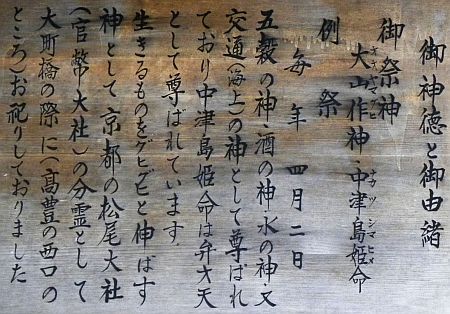 御神徳と御由緒
御祭神
オオヤマグヒ ナカツシマヒメ
大山作神・中津島姫命
例祭
毎年 四月二日
五穀の神・酒の神・水の神・又
交通(海上)の神として尊ばれ
ており中津島姫命は弁才天
として尊ばれています。
生きるものをグヒグヒと伸ばす
神として京都の松尾大社
(官幣大社)の分霊として
大町橋の際に(高豊の西口の
ところ)お祀りしておりました